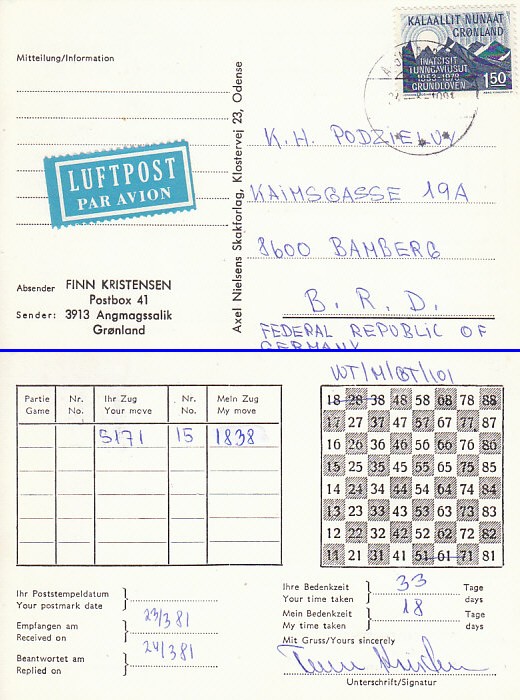 KALAALLIT NUNAAT
GRØNLAND
INATSISIT
TUNNGAVIUSUT
1953-1978
GRUNDLOVEN
150
Mitteilung/Information
LUFTPOST
PAR AVION
Absender FINN KRISTENSEN
Postbox 41
Sender: 3913 Angmagssalik
Grønland
Axel Nielsens Skakforlag, Klostervej 23, Odense
K.H. PODZIELNY
KAIMSGASSE 19A
8600 BAMBERG
B.R.D.
FEDERAL REPUBLIC OF
GERMANY
WT/M/GT/101
Partie Nr. Ihr Zug Nr. Mein Zug
Game No. Your move No. My move
5171 15 1838
18 28 38 48 58 68 78 88
17 27 37 47 57 67 77 87
16 26 36 46 56 66 76 86
15 25 35 45 55 65 75 85
14 24 34 44 54 64 74 84
13 23 33 43 53 63 73 83
12 22 32 42 52 62 72 82
11 21 31 41 51 61 71 81
Ihr Poststempeldatum
Your postmark date
Empfangen am
Received on
23/3 81
Beantwortet am
Replied on
24/3 81
Ihre Bedenkzeit 33 Tage
Your time taken days
Mein Bedenkzeit 18 Tage
My time taken days
Mit Gruss/Yours sincerely
Finn Kristensen
Unterschrift/Signatur